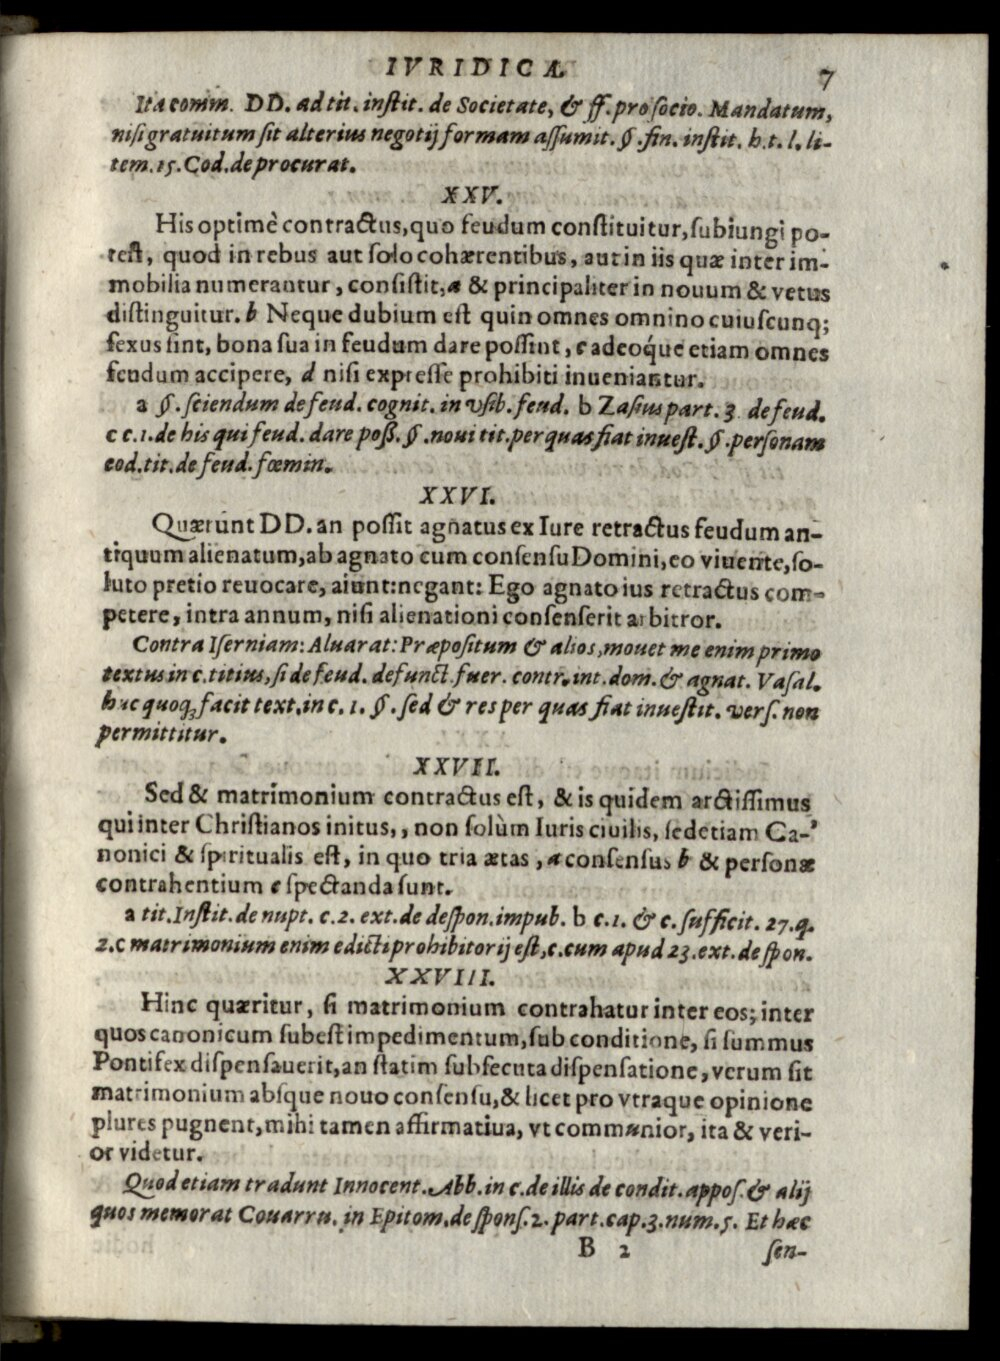 IVRIDICÆ 7
Ita comm. DD. ad tit. inſtit. de Societate, & ff. pro ſocio. Mandatum,
niſi gratuitum ſit alterius negotij formam aſſumit. §. fin. inſtit. h.t. l. li-
tem. 15. Cod. de procurat.
XXV.
His optimè contractus, quo feudum conſtituitur, ſubiungi po-
teſt, quod in rebus aut ſolo cohærentibus, aut in iis quæ inter im-
mobilia numerantur, conſiſtit, a & principaliter in nouum & vetus
diſtinguitur. b Neque dubium eſt quin omnes omnino cuiuſcunq;
ſexus ſint, bona ſua in feudum dare poſſint, c adeoq́ue etiam omnes
feudum accipere, d niſi expreſſe prohibiti inueniantur.
a §. ſciendum de feud. cognit. in vſib. feud. b Zaſius part. 3. de feud.
c c. 1. de his qui feud. dare poſſ. §. noui tit. per quas fiat inueſt. §. perſonam
eod. tit. de feud. fœmin.
XXVI.
Quærunt DD. an poſſit agnatus ex Iure retractus feudum an-
tiquum alienatum, ab agnato cum conſenſu Domini, eo viuente, ſo-
luto pretio reuocare, aiunt: negant: Ego agnato ius retractus com-
petere, intra annum, niſi alienationi conſenſerit arbitror.
Contra Iſerniam: Aluarat: Præpoſitum & alios, mouet me enim primo
textus in c. titius, ſi de feud. defunct. fuer. contr. int. dom. & agnat. Vaſal.
huc quoq; facit text. in c. 1. §. ſed & res per quas fiat inueſtit. verſ. non
permittitur.
XXVII.
Sed & matrimonium contractus eſt, & is quidem arctiſſimus
qui inter Chriſtianos initus, , non ſolùm Iuris ciuilis, ſed etiam Ca-
nonici & ſpiritualis eſt, in quo tria ætas, a conſenſus b & perſonæ
contrahentium c ſpectanda ſunt.
a tit. Inſtit. de nupt. c. 2. ext. de deſpon. impub. b c. 1. & c. ſufficit. 27. q.
2. c matrimonium enim edicti prohibitorij eſt, c. cum apud 23. ext. de ſpon.
XXVIII.
Hinc quæritur, ſi matrimonium contrahatur inter eos; inter
quos canonicum ſubeſt impedimentum, ſub conditione, ſi ſummus
Pontifex diſpenſauerit, an ſtatim ſubſecuta diſpenſatione, verum ſit
matrimonium abſque nouo conſenſu, & licet pro vtraque opinione
plures pugnent, mihi tamen affirmatiua, vt communior, ita & veri-
or videtur.
Quod etiam tradunt Innocent. Abb. in c. de illis de condit. appoſ. & alij
quos memorat Couarru. in Epitom. de ſponſ. 2. part. cap. 3. num. 5. Et hæc
B 2 ſen-